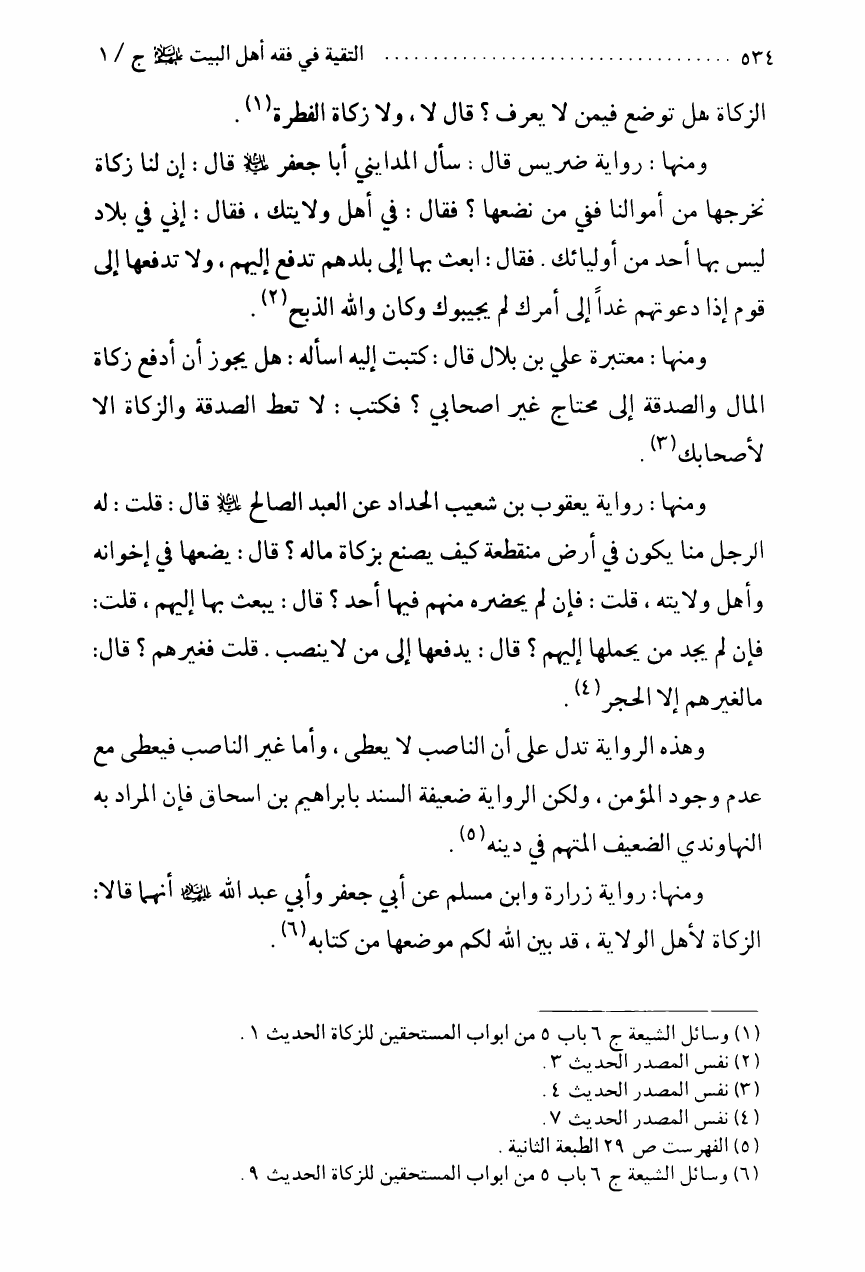 ٥٣٤ .................................... التقية في فقه أهل البيت عليهم السلام ج / ١
الزكاة هل توضع فيمن لا يعرف ؟ قال لا ، ولا زكاة الفطرة(١) .
ومنها : رواية ضريس قال : سأل المدايني أبا جعفر عليه السلام قال : إن لنا زكاة
نخرجها من أموالنا ففي من نضعها ؟ فقال : في أهل ولايتك ، فقال : إني في بلاد
ليس بها أحد من أوليائك . فقال : ابعث بها إلى بلدهم تدفع إليهم ، ولا تدفعها إلى
قوم إذا دعوتهم غداً إلى أمرك لم يجيبوك وكان والله الذبح(٢) .
ومنها : معتبرة علي بن بلال قال : كتبت إليه اسأله : هل يجوز أن أدفع زكاة
المال والصدقة إلى محتاج غير اصحابي ؟ فكتب : لا تعط الصدقة والزكاة الا
لأصحابك(٣) .
ومنها : رواية يعقوب بن شعيب الحداد عن العبد الصالح عليه السلام قال : قلت : له
الرجل منا يكون في أرض منقطعة كيف يصنع بزكاة ماله ؟ قال : يضعها في إخوانه
وأهل ولايته ، قلت : فإن لم يحضره منهم فيها أحد ؟ قال : يبعث بها إليهم ، قلت:
فإن لم يجد من يحملها إليهم ؟ قال : يدفعها إلى من لاينصب . قلت فغيرهم ؟ قال:
مالغيرهم إلا الحجر(٤) .
وهذه الرواية تدل على أن الناصب لا يعطى ، وأما غير الناصب فيعطى مع
عدم وجود المؤمن ، ولكن الرواية ضعيفة السند بابراهيم بن اسحاق فإن المراد به
النهاوندي الضعيف المتهم في دينه(٥) .
ومنها: رواية زرارة وابن مسلم عن أبي جعفر وأبي عبد الله عليهما السلام أنهما قالا:
الزكاة لأهل الولاية ، قد بين الله لكم موضعها من كتابه(٦) .
(١) وسائل الشيعة ج ٦ باب ٥ من ابواب المستحقين للزكاة الحديث ١ .
(٢) نفس المصدر الحديث ٣ .
(٣) نفس المصدر الحديث ٤ .
(٤) نفس المصدر الحديث ٧ .
(٥) الفهرست ص ٢٩ الطبعة الثانية .
(٦) وسائل الشيعة ج ٦ باب ٥ من ابواب المستحقين للزكاة الحديث ٩ .